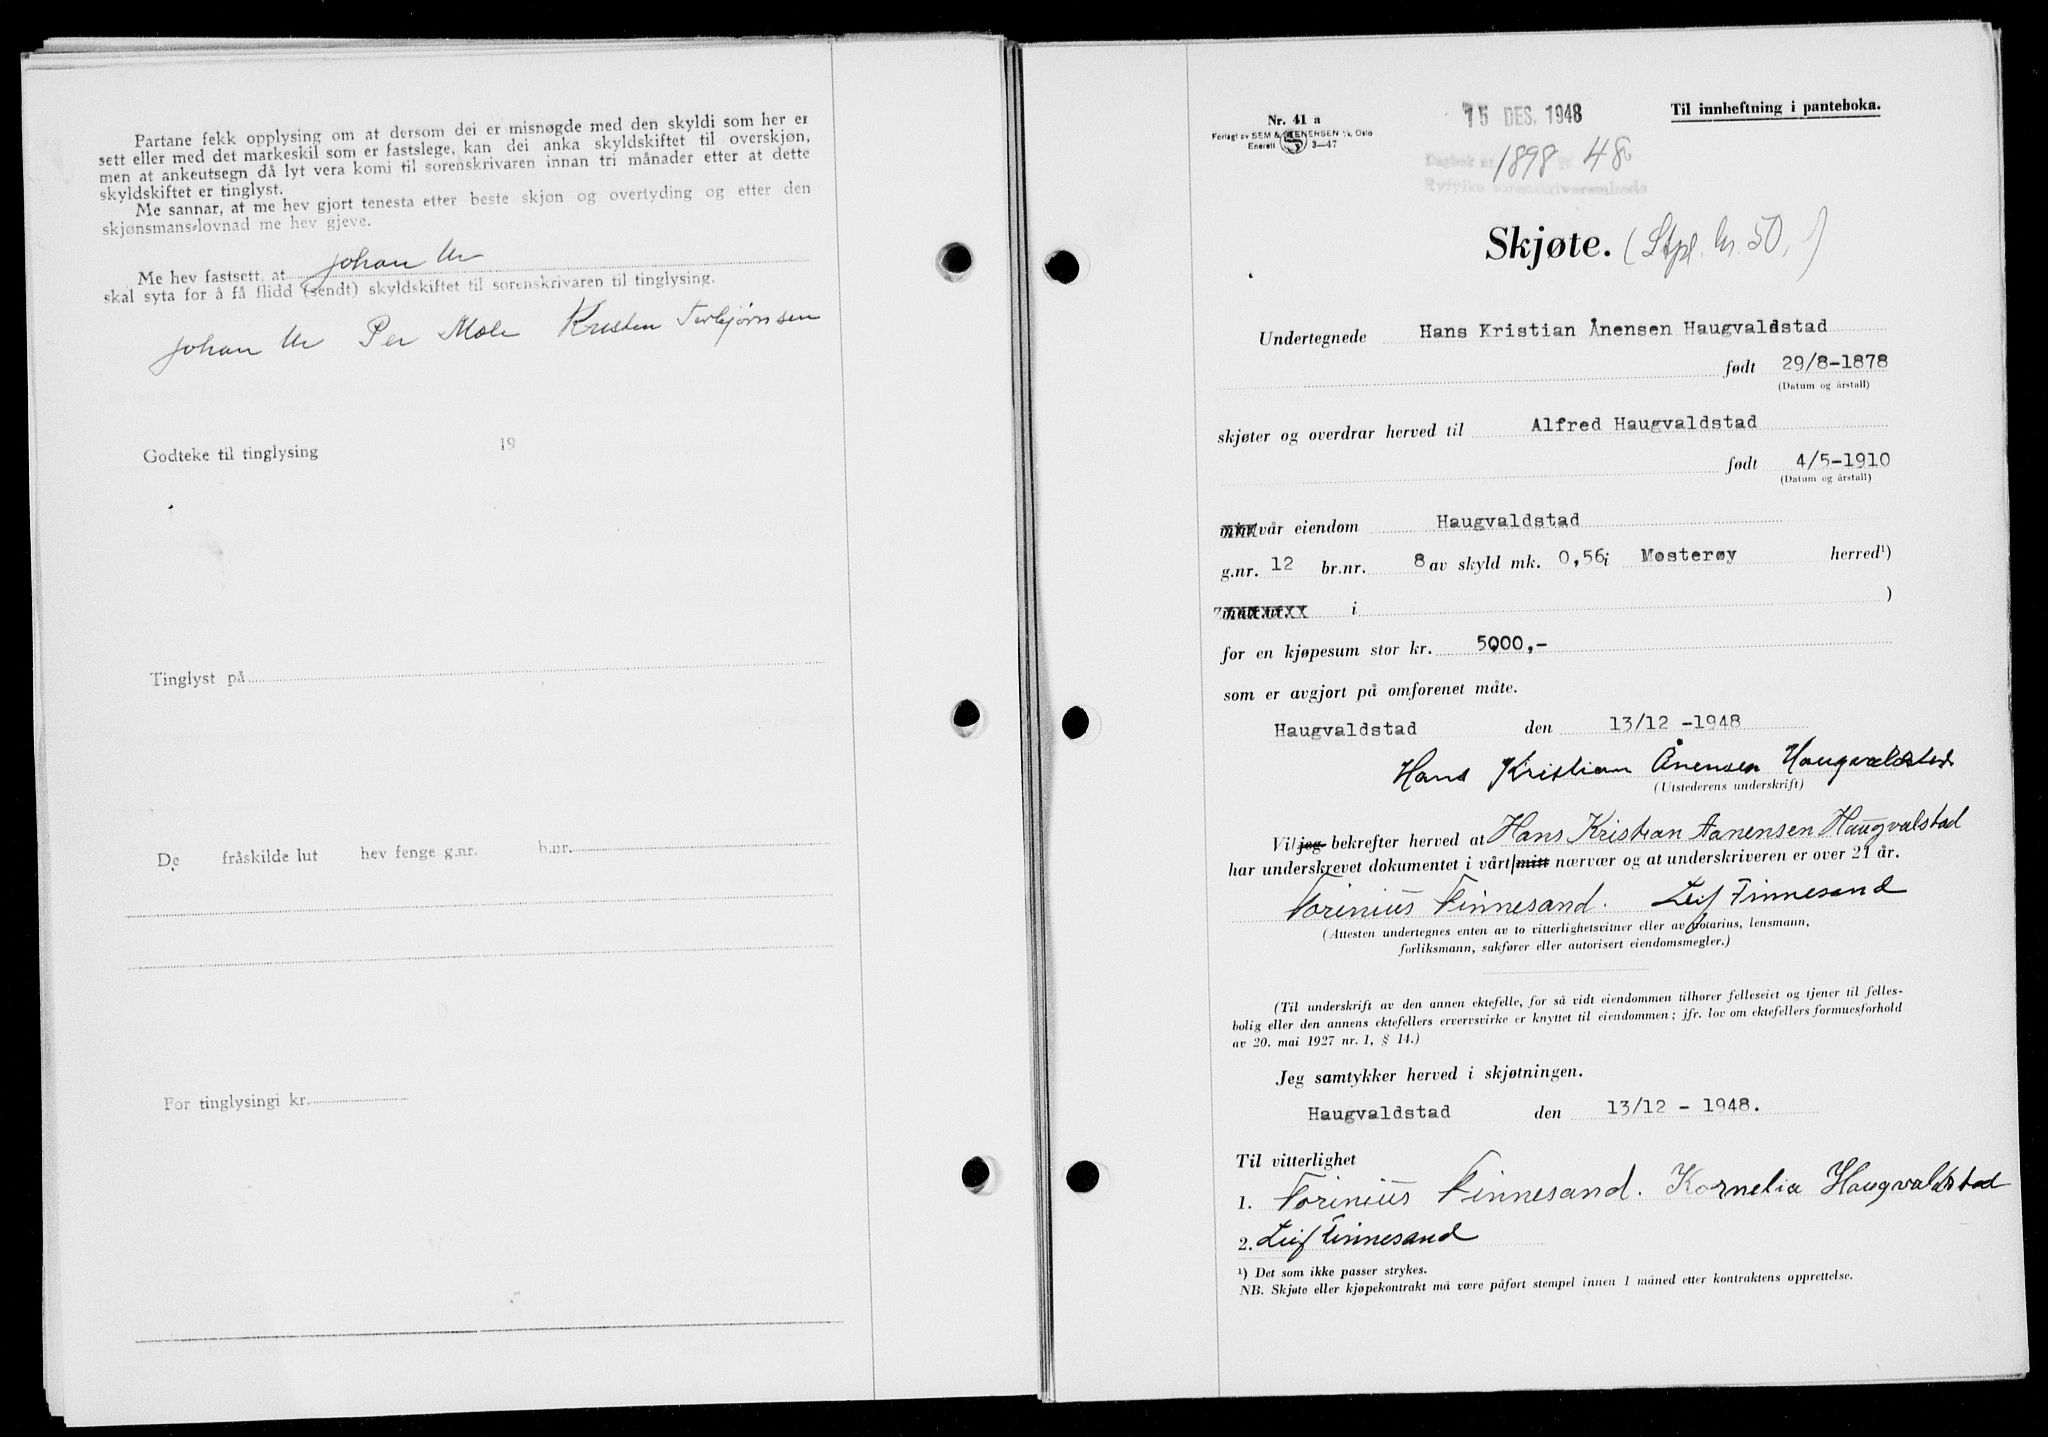 Partane fekk opplysing om at dersom dei er misnøgde med den skyldi som her er
sett eller med det markeskil som er fastslege, kan dei anka skyldskiftet til overskjøn,
men at ankeutsegn då lyt vera komi til sorenskrivaren innan tri månader etter at dette
skyldskiftet er tinglyst.
Me sannar, at me hev gjort tenesta etter beste skjøn og overtyding og etter den
skjønsmans-lovnad me hev gjeve.
Me hev fastsett, at Johan Ur
skal syta for å få flidd (sendt) skyldskiftet til sorenskrivaren til tinglysing.
Johan Ur Per Mæle Kristen Torbjørnsen
Godteke til tinglysing 19
Tinglyst på
De fråskilde lut hev fenge g.nr. b.nr.
For tinglysingi kr.
Nr. 41 a
Forlagt av SEM & STENERSEN A/s, Oslo
Enerett S 3—47
15 DES. 1948
Til innheftning i panteboka.
Dagbok nr. 1898 48
Ryfylke sorenskriverembede
Skjøte. (Stpl. kr. 50,-)
Undertegnede Hans Kristian Ånensen Haugvaldstad
født 29/8-1878
(Datum og årstall)
skjøter og overdrar herved til Alfred Haugvaldstad
født 4/5-1910
(Datum og årstall)
vår eiendom Haugvaldstad
g.nr. 12 br.nr. 8 av skyld mk. 0,56 i Mosterøy herred¹)
i )
for en kjøpesum stor kr. 5000,-
som er avgjort på omforenet måte.
Haugvaldstad den 13/12 -1948
Hans Kristian Ånensen Haugvaldstad
(Utstederens underskrift)
Vi/jeg bekrefter herved at Hans Kristian Aanensen Haugvalstad
har underskrevet dokumentet i vårt/mitt nærvær og at underskriveren er over 21 år.
Torinius Finnesand. Leif Finnesand
(Attesten undertegnes enten av to vitterlighetsvitner eller av notarius, lensmann,
forliksmann, sakfører eller autorisert eiendomsmegler.)
(Til underskrift av den annen ektefelle, for så vidt eiendommen tilhører felleseiet og tjener til felles-
bolig eller den annens ektefellers ervervsvirke er knyttet til eiendommen; jfr. lov om ektefellers formuesforhold
av 20. mai 1927 nr. 1, § 14.)
Jeg samtykker herved i skjøtningen.
Haugvaldstad den 13/12 - 1948.
Til vitterlighet
1. Torinius Finnesand. Kornelia Haugvaldstad
2. Leif Finnesand
¹) Det som ikke passer strykes.
NB. Skjøte eller kjøpekontrakt må være påført stempel innen 1 måned etter kontraktens opprettelse.